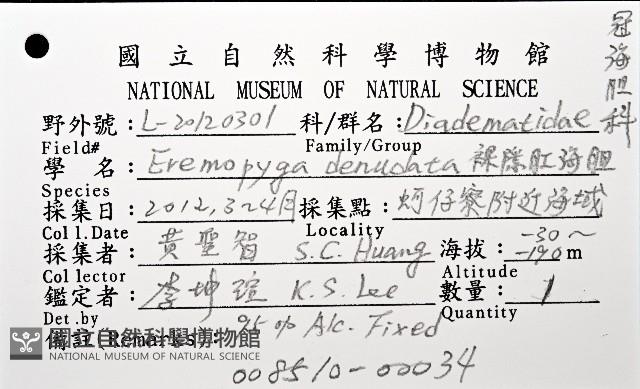 國立自然科學博物館
NATIONAL MUSEUM OF NATURAL SCIENCE
冠海胆科
野外號：L-20120301 科/群名：Diadematidae
Field# Family/Group
學名：Eremopyga denudata 裸隙肛海胆
Species
採集日：2012, 3~4月 採集點：蚵仔寮附近海域
Coll.Date Locality
採集者：黃聖智 S.C. Huang 海拔：-30～-190m
Collector Altitude
鑑定者：李坤瑄 K.S. Lee 數量：1
Det.by Quantity
備註(Remarks)：95% Alc. Fixed
國立自然科學博物館
NATIONAL MUSEUM OF NATURAL SCIENCE
008510-00034